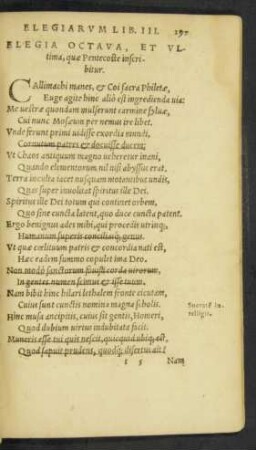 ELEGIARVM LIB. III. 197
ELEGIA OCTAVA, ET VL-
tima, quæ Pentecoste inscri-
bitur.
CAllimachi manes, & Coi sacra Philetæ,
Euge agite hinc alio est ingredienda uia:
Me uestræ quondam mulserunt carmine syluæ,
Cui nunc Mosæum per nemus ire libet.
Vnde ferunt primi uidisse exordia mundi,
Cornutum patres & docuisse ducem:
Vt Chaos antiquum magna uehererur inani,
Quando elementorum nil nisi abyssus erat.
Terra inculta iacet nusquam motantibus undis,
Quas super inuolitat spiritus ille Dei.
Spiritus ille Dei totum qui continet orbem,
Quo sine cuncta latent, quo duce cuncta patent.
Ergo benignus ades mihi, qui procedis utrinq;
Humanum superis concilians genus.
Vt quæ cœlituum patris & concordia nati est,
Hæc eadem summo copulet ima Deo.
Non modò sanctorum
In gentes numen
Nam bibit hinc hilari lethalem fronte cicutam,
Cuius sunt cunctis nomina magna scholis.
Hinc musa ancipitis, cuius sit gentis, Homeri,
Quod dubium uertus indubitata facit.
Muneris esse tui quit nescit, quicquid ubiq; est,
Quod sapuit prudens, quodq; disertus ait?
Socrate in-
telligit.
i 5 Nam